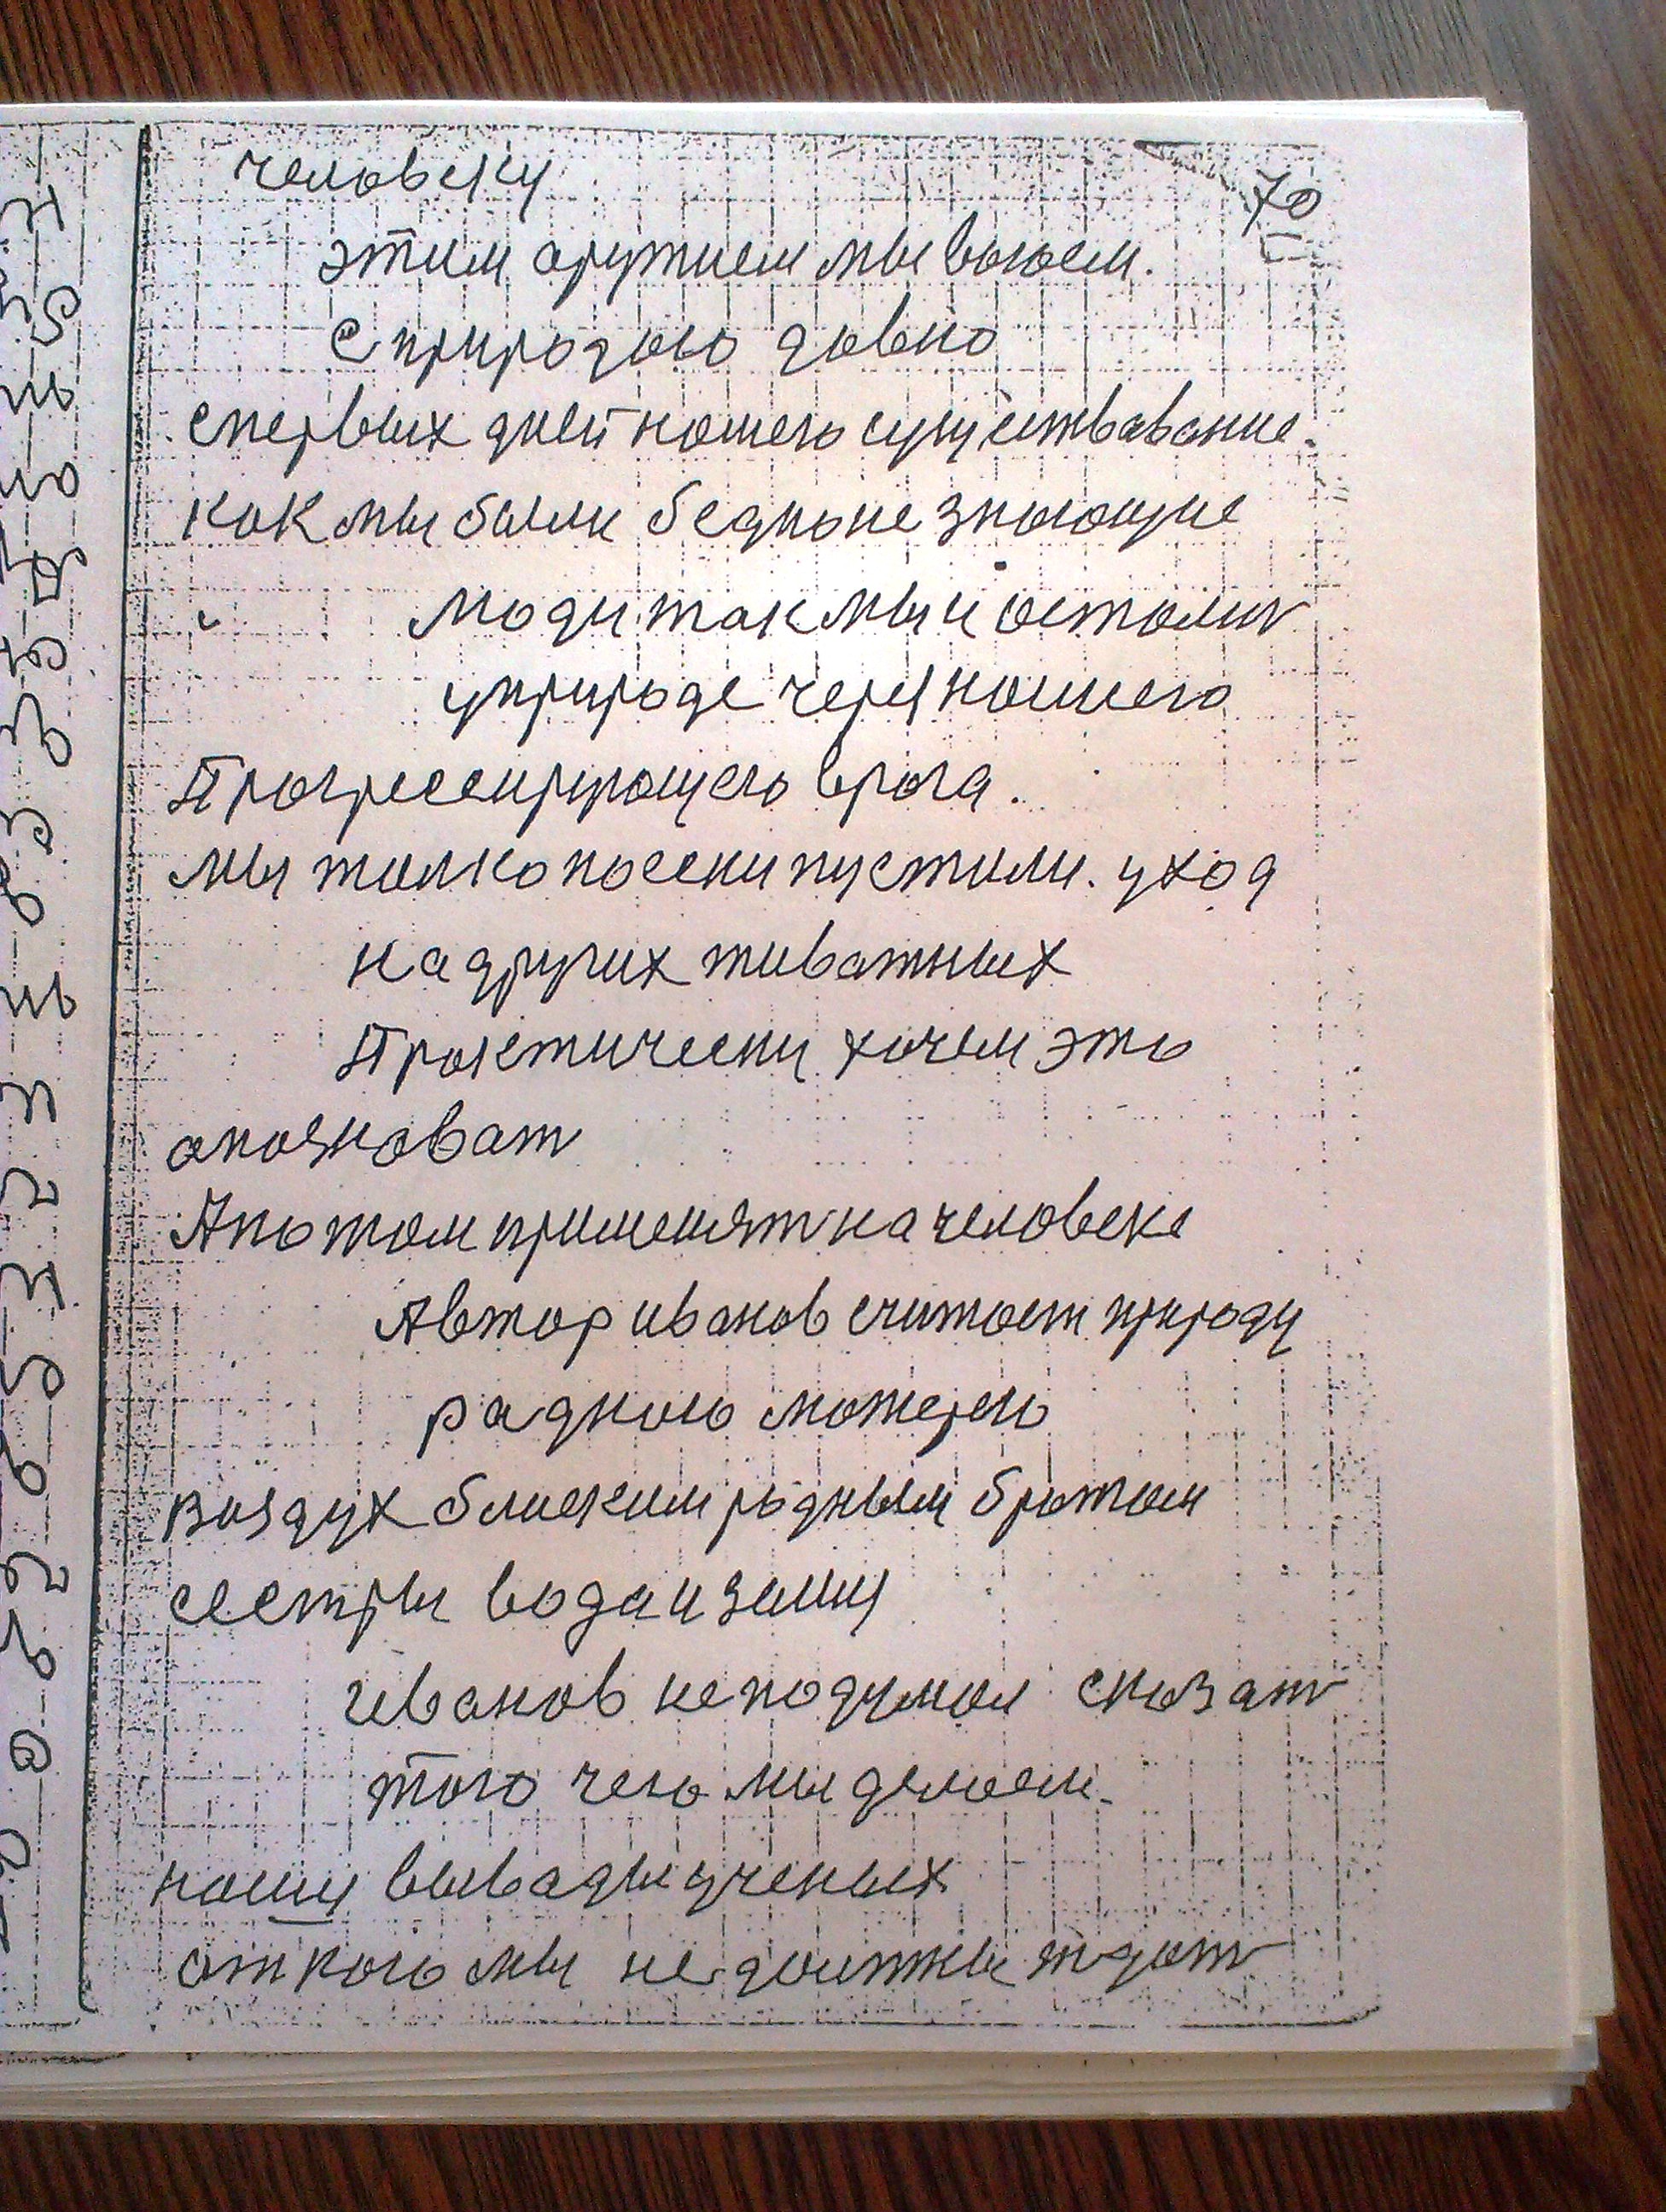 70
человеку
этим аружием мы воюем.
с природою довно
спервых дней нашего существавание.
как мы были бедно не знающие
люди так мы и осталис
у природе через нашего
Прогрессирующего врага.
мы толко поески пустили. уход
на других животных
Практически хочем это
опознават
А потом применят на человеке
Автор иванов считает природу
радною матерею
воздух близким родным братом
сестры вода и землy
Иванов не подумал сказат
того чего мы делаем.
нашы вывады ученых
от кого мы не должны ждат